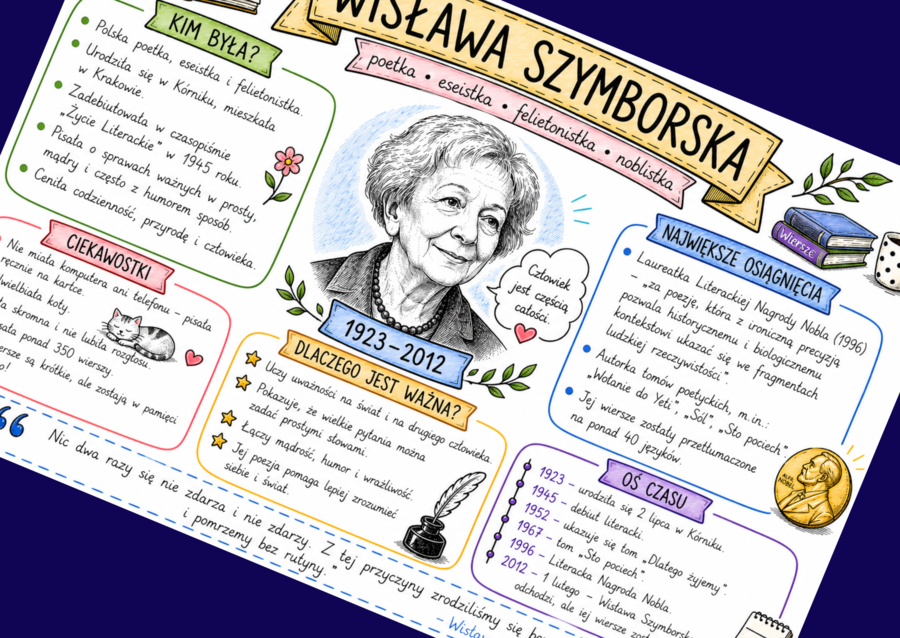 WISŁAWA SZYMBORSKA
poetka • eseistka • felietonistka • noblistka
KIM BYŁA?
• Polska poetka, eseistka i felietonistka.
• Urodziła się w Kórniku, mieszkała
w Krakowie.
• Zadebiutowała w czasopiśmie
„Życie Literackie” w 1945 roku.
• Pisała o sprawach ważnych w prosty,
mądry i często z humorem sposób.
• Ceniła codzienność, przyrodę i człowieka.
CIEKAWOSTKI
Nie miała komputera ani telefonu – pisała
ręcznie na kartce.
wielbiała koty.
skromna i nie lubiła rozgłosu.
ponad 350 wierszy.
są krótkie, ale zostają w pamięci
Człowiek
jest częścią
całości.
1923–2012
DLACZEGO JEST WAŻNA?
Uczy uważności na świat i na drugiego człowieka.
Pokazuje, że wielkie pytania można
zadać prostymi słowami.
Łączy mądrość, humor i wrażliwość.
Jej poezja pomaga lepiej zrozumieć
siebie i świat.
Wiersze
NAJWIĘKSZE OSIĄGNIĘCIA
• Laureatka Literackiej Nagrody Nobla (1996)
– „za poezję, która z ironiczną precyzją
pozwala historycznemu i biologicznemu
kontekstowi ukazać się we fragmentach
ludzkiej rzeczywistości”.
• Autorka tomów poetyckich, m.in.:
„Wołanie do Yeti”, „Sól”, „Sto pociech”.
• Jej wiersze zostały przetłumaczone
na ponad 40 języków.
OŚ CZASU
1923 – urodziła się 2 lipca w Kórniku.
1945 – debiut literacki.
1952 – ukazuje się tom „Dlatego żyjemy”.
1967 – tom „Sto pociech”.
1996 – Literacka Nagroda Nobla.
2012 – 1 lutego – Wisława Szymborska
odchodzi, ale jej wiersze
“ Nic dwa razy się nie zdarza i nie zdarzy. Z tej przyczyny zrodziliśmy się
i pomrzemy bez rutyny.”
– Wisław